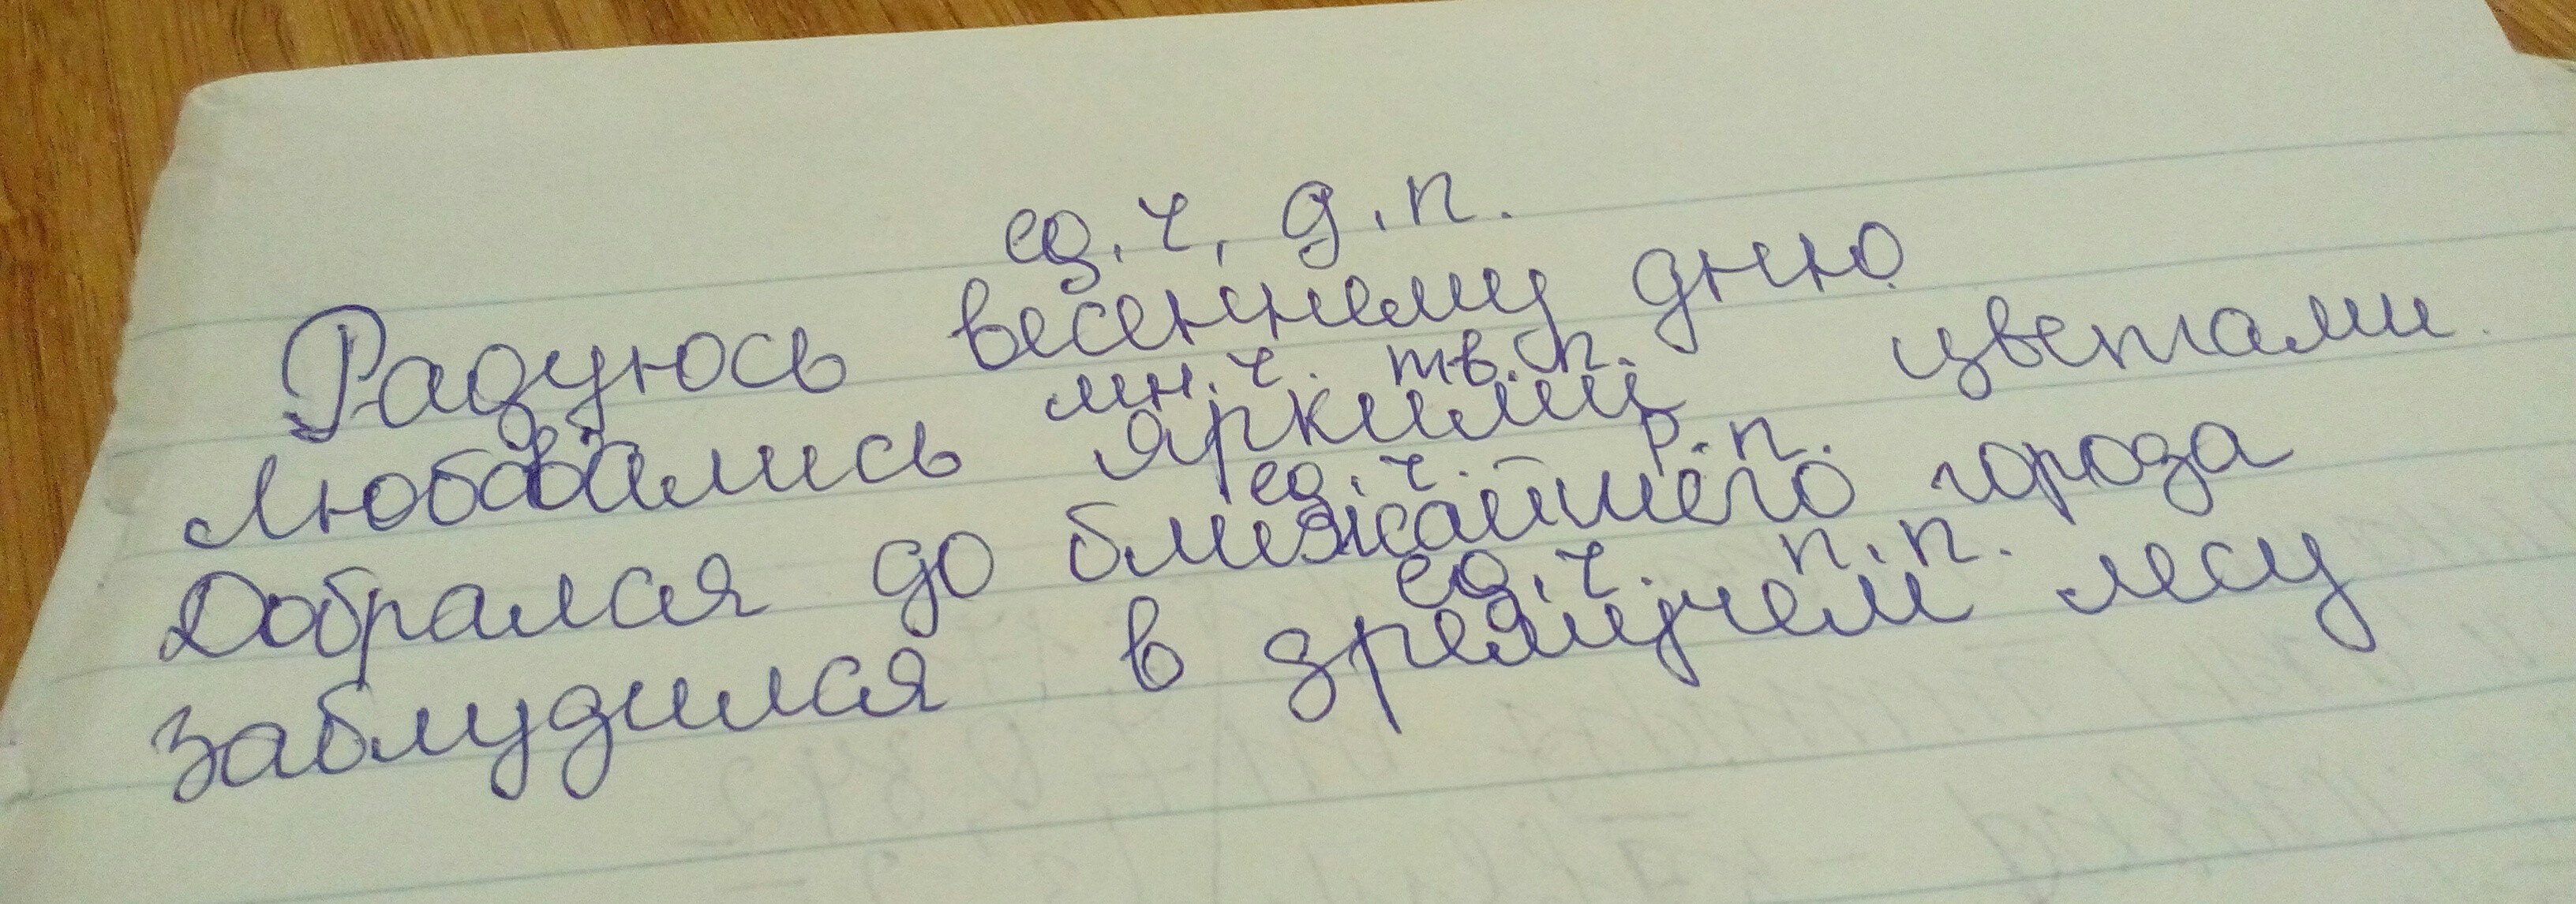 ед. ч, д. п.
Радуюсь весеннему дню
мн. ч. тв. п.
Любовались яркими цветами.
ед. ч. р. п.
Добрался до ближайшего города
ед. ч. п. п.
Заблудился в дремучем лесу